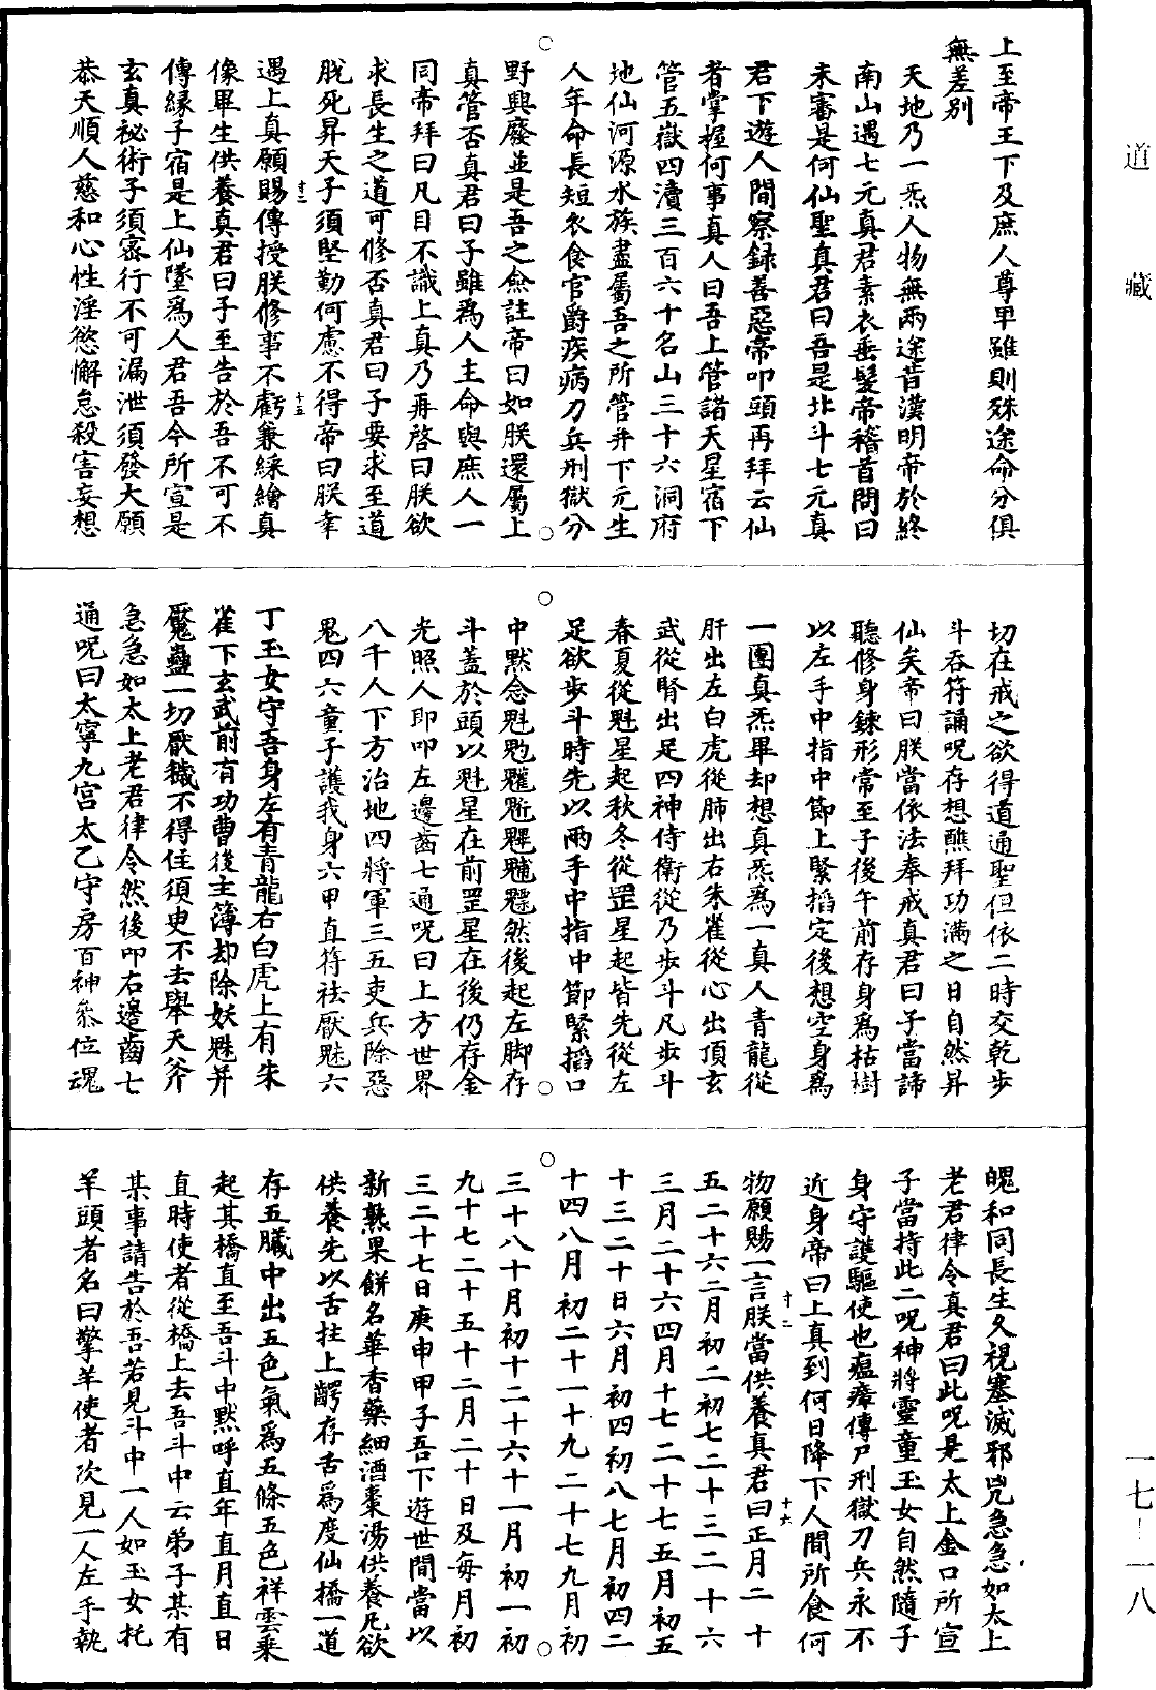 上至帝王下及庶人尊卑雖則殊途命分俱
無差別
天地乃一炁人物無兩途昔漢明帝於終
南山遇七元真君素衣垂髮帝稽首問曰
未審是何仙聖真君曰吾是北斗七元真
君下遊人間察録善惡帝叩頭再拜云仙
者掌握何事真人曰吾上管諸天星宿下
管五嶽四瀆三百六十名山三十六洞府
地仙河源水族盡屬吾之所管并下元生
人年命長短衣食官爵疾病刀兵刑獄分
野興廢並是吾之僉註帝曰如朕還屬上
真管否真君曰子雖為人主命與庶人一
同帝拜曰凡目不識上真乃再啓曰朕欲
求長生之道可修否真君曰子要求至道
脱死昇天子須堅勤何慮不得帝曰朕幸
遇上真願賜傳授朕修事不虧兼綵繪真
像畢生供養真君曰子至告於吾不可不
傳緣子宿是上仙墜為人君吾今所宣是
玄真祕術子須密行不可漏泄須發大願
恭天順人慈和心性淫慾懈怠殺害妄想
切在戒之欲得道通聖但依二時交乾步
斗吞符誦呪存想醮拜功滿之日自然昇
仙矣帝曰朕當依法奉戒真君曰子當諦
聽修身鍊形常至子後午前存身為枯樹
以左手中指中節上緊搯定後想空身為
一團真炁畢却想真炁為一真人青龍從
肝出左白虎從肺出右朱雀從心出頂玄
武從腎出足四神侍衛從乃步斗凡步斗
春夏從魁星起秋冬從罡星起皆先從左
足欲步斗時先以兩手中指中節緊搯口
中默念魁䰢䰣魓䰡䰟魒然後起左脚存
斗蓋於頭以魁星在前罡星在後仍存金
光照人即叩左邊齒七通呪曰上方世界
八千人下方治地四將軍三五吏兵除惡
鬼四六童子護我身六甲直符祛厭魅六
丁玉女守吾身左有青龍右白虎上有朱
雀下玄武前有功曹後主簿却除妖魅并
魘蠱一切厭穢不得住須臾不去舉天斧
急急如太上老君律令然後叩右邊齒七
通呪曰太寧九宫太乙守房百神叅位魂
魄和同長生久視塞滅邪兇急急如太上
老君律令真君曰此呪是太上金口所宣
子當持此二呪神將靈童玉女自然隨子
身守護驅使也瘟瘴傳尸刑獄刀兵永不
近身帝曰上真到何日降下人間所食何
物願賜一言朕當供養真君曰正月二十
五二十六二月初二初七二十三二十六
三月二十六四月十七二十七五月初五
十三二十日六月初四初八七月初四二
十四八月初二十一十九二十七九月初
三十八十月初十二十六十一月初一初
九十七二十五十二月二十日及每月初
三二十七日庚申甲子吾下遊世間當以
新熟果餅名華香藥細酒棗湯供養凡欲
供養先以舌拄上齶存舌為度仙橋一道
存五臟中出五色氣為五條五色祥雲乘
起其橋直至吾斗中默呼直年直月直日
直時使者從橋上去吾斗中云弟子某有
某事請告於吾若見斗中一人如玉女托
羊頭者名曰擎羊使者次見一人左手執
十三
十五
十二
十六
道藏
一七—一八